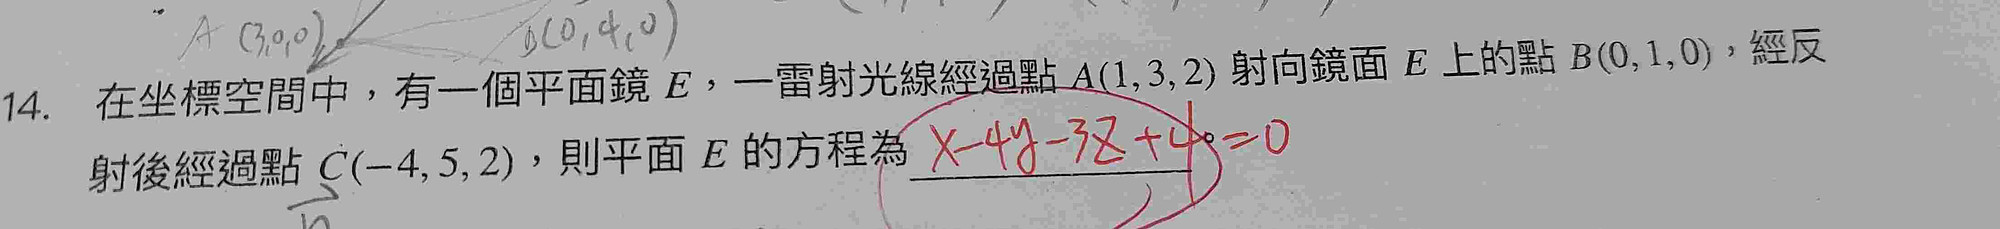 A (3,0,0)
B(0,4,0)
14. 在坐標空間中，有一個平面鏡 E，一雷射光線經過點 A(1,3,2) 射向鏡面 E 上的點 B(0,1,0)，經反
射後經過點 C(−4,5,2)，則平面 E 的方程為 x-4y-3z+4=0 。
n